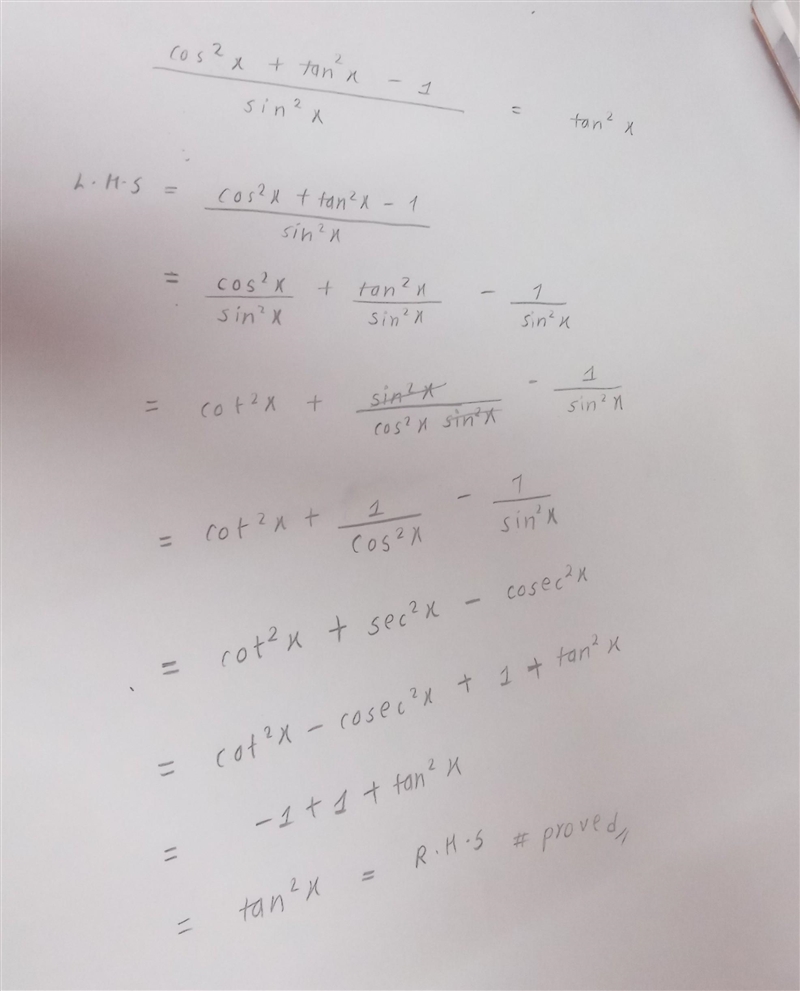 cos²x + tan²x - 1 / sin²x = tan²x
L.H.S = cos²x + tan²x - 1 / sin²x
= cos²x / sin²x + tan²x / sin²x - 1 / sin²x
= cot²x + sin²x / cos²x sin²x - 1 / sin²x
= cot²x + 1 / cos²x - 1 / sin²x
= cot²x + sec²x - cosec²x
= cot²x - cosec²x + 1 + tan²x
= -1 + 1 + tan²x
= tan²x = R.H.S # proved